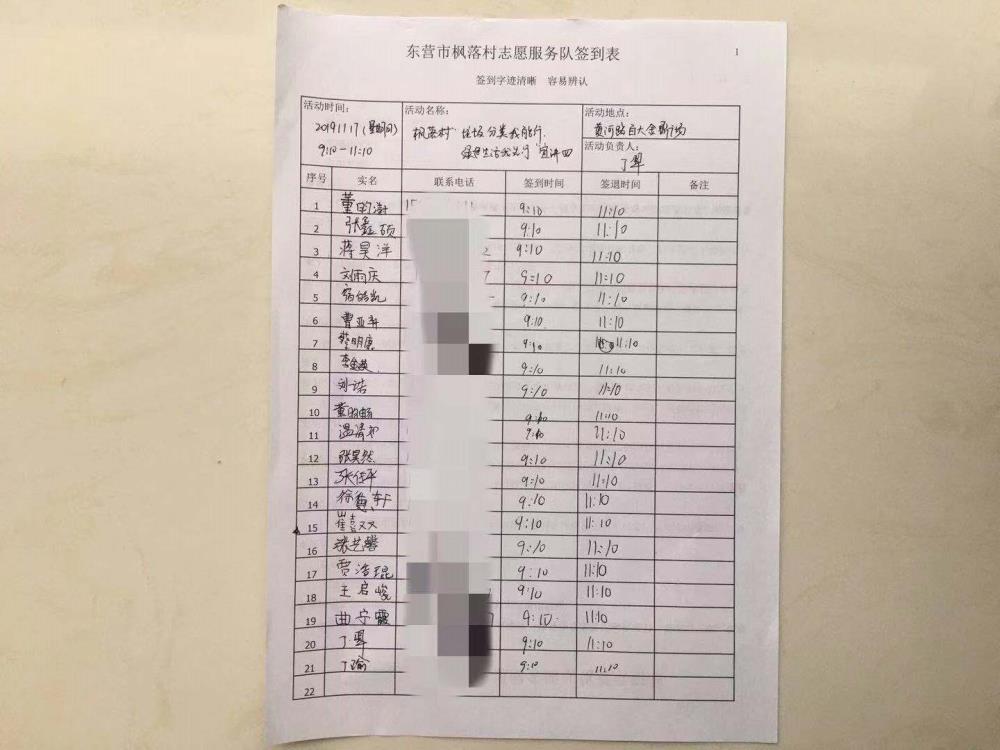 东营市枫落村志愿服务队签到表
1
签到字迹清晰 容易辨认
活动时间： 活动名称： 活动地点：
20191117(星期日) 枫落村 垃圾分类我能行 黄河路百大金鼎广场
9:10-11:10 绿色生活我先行 宣讲四 活动负责人：
丁翠
序号 实名 联系电话 签到时间 签退时间 备注
1 董昀澍 15 9:10 11:10
2 张鑫硕 9:10 11:10
3 蒋昊洋 2 9:10 11:10
4 刘雨庆 7 9:10 11:10
5 9:10 11:10
6 曹亚 9:10 11:10
7 明康 9:10 11:10
8 李金英 9:10 11:10
9 刘诺 9:10 11:10
10 董昀畅 9:10 11:10
11 温清 9:10 11:10
12 张昊然 9:10 11:10
13 张佳平 9:10 11:10
14 徐 9:10 11:10
15 崔喜双 9:10 11:10
16 张艺馨 9:10 11:10
17 贾浩琨 9:10 11:10
18 王启峻 9:10 11:10
19 曲宁霞 9:10 11:10
20 丁翠 9:10 11:10
21 丁瑜 9:10 11:10
22